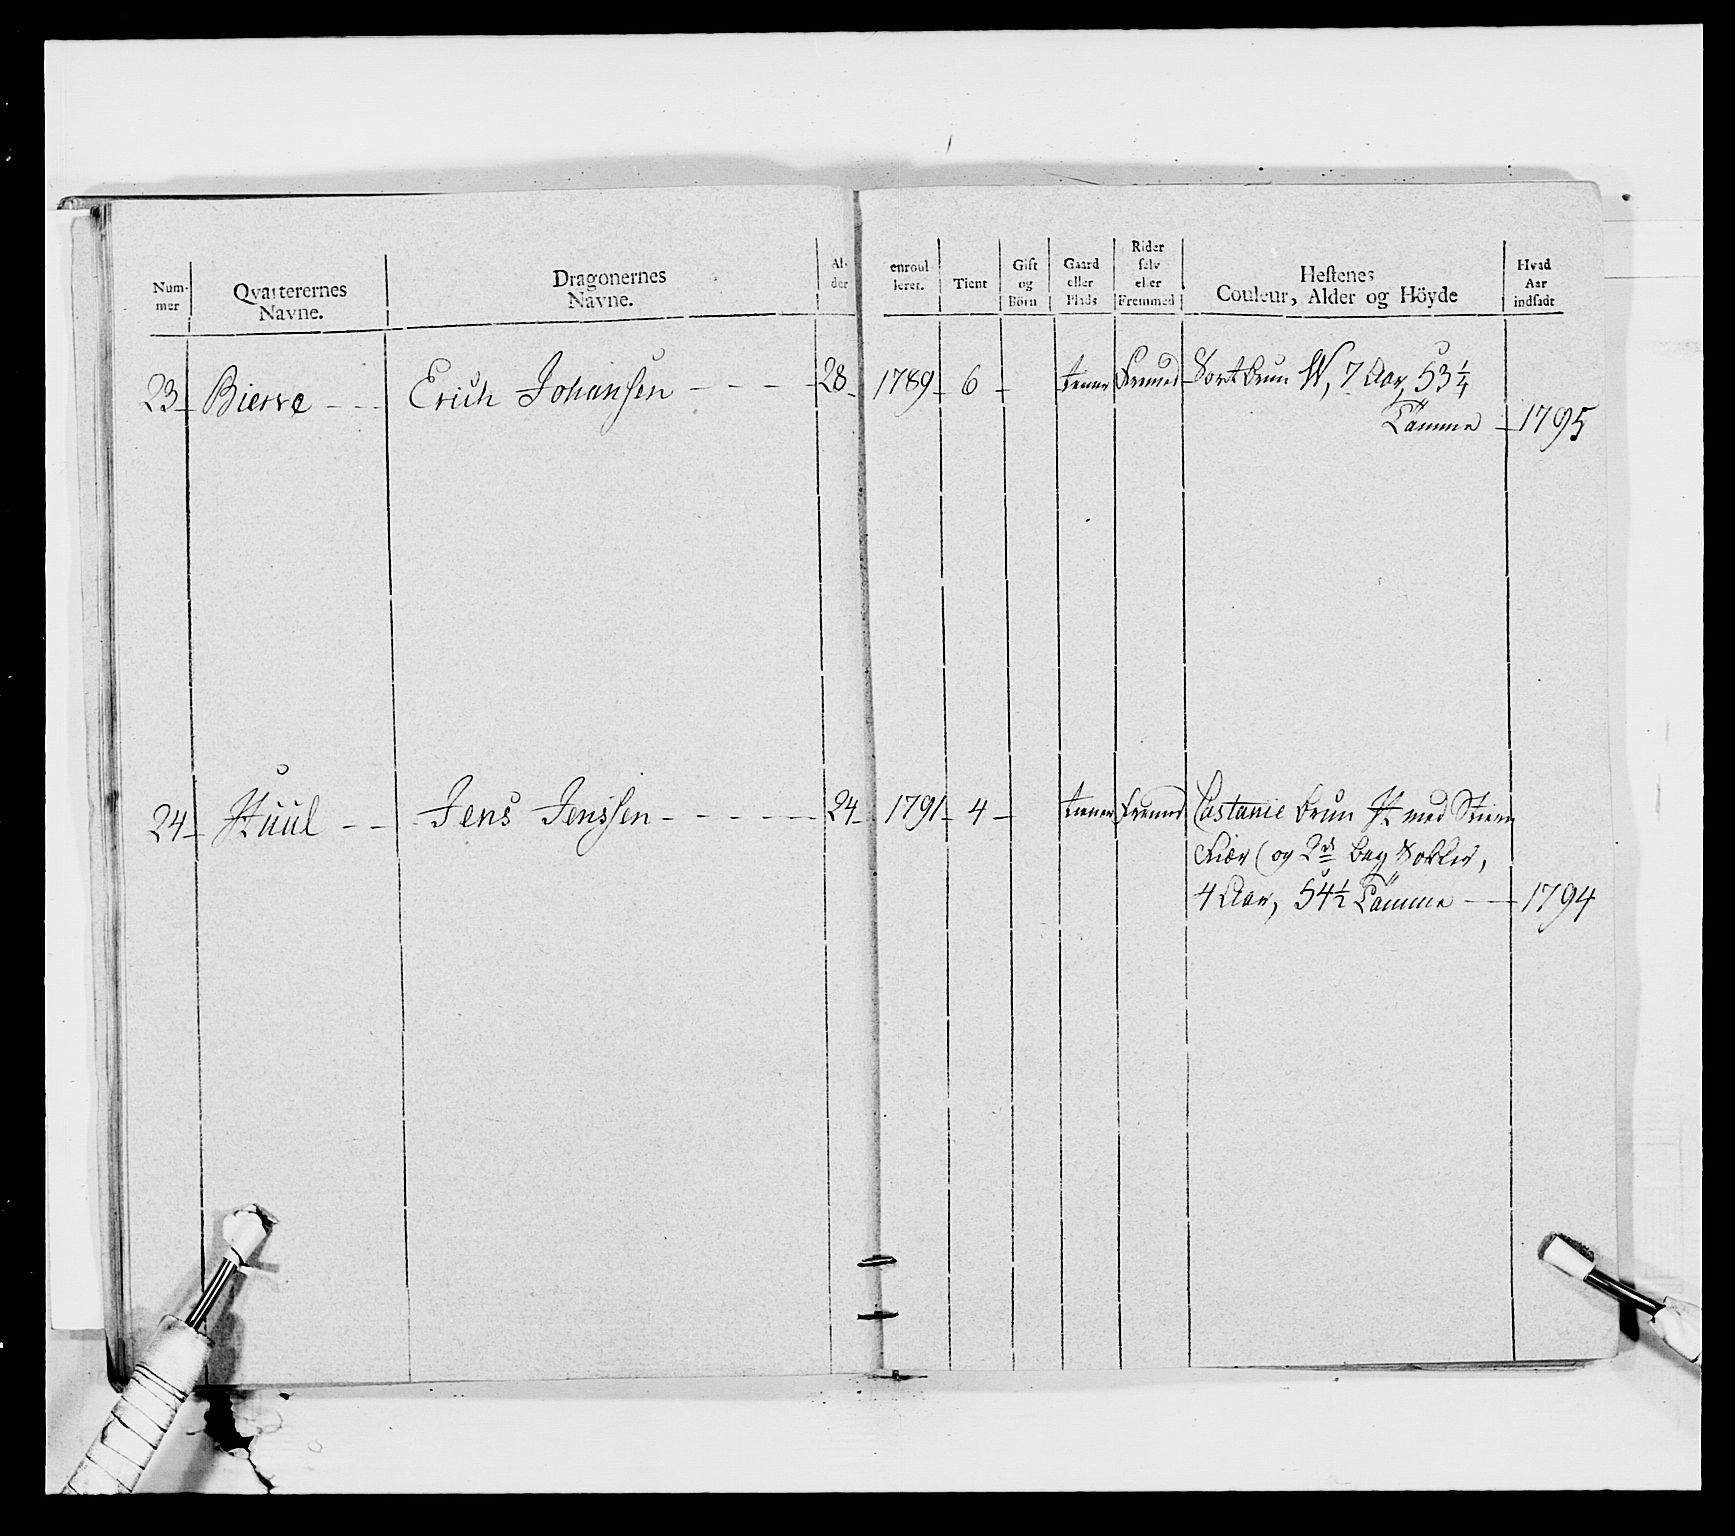 Num-
mer
Qvarterernes
Navne.
Dragonernes
Navne.
Al-
der
enroul-
leret.
Tient
Gift
og
Börn
Gaard
eller
Plads
Rider
selv
eller
Fremmed
Hestenes
Couleur, Alder og Höyde
Hvad
Aar
indsadt
23 Bierve - - - Erich Johansen - - - - 28 1789 6 - tiener Fremed Sortbrun W, 7 Aar, 53¼
Tömme - 1795
24 Stuul - - Jens Jenssen - - - - - - 24 1791 4 - tiener Fremed Castanie brun H med Stiern
og 2de bag Sokker,
4 Aar, 54½ Tömme - - 1794